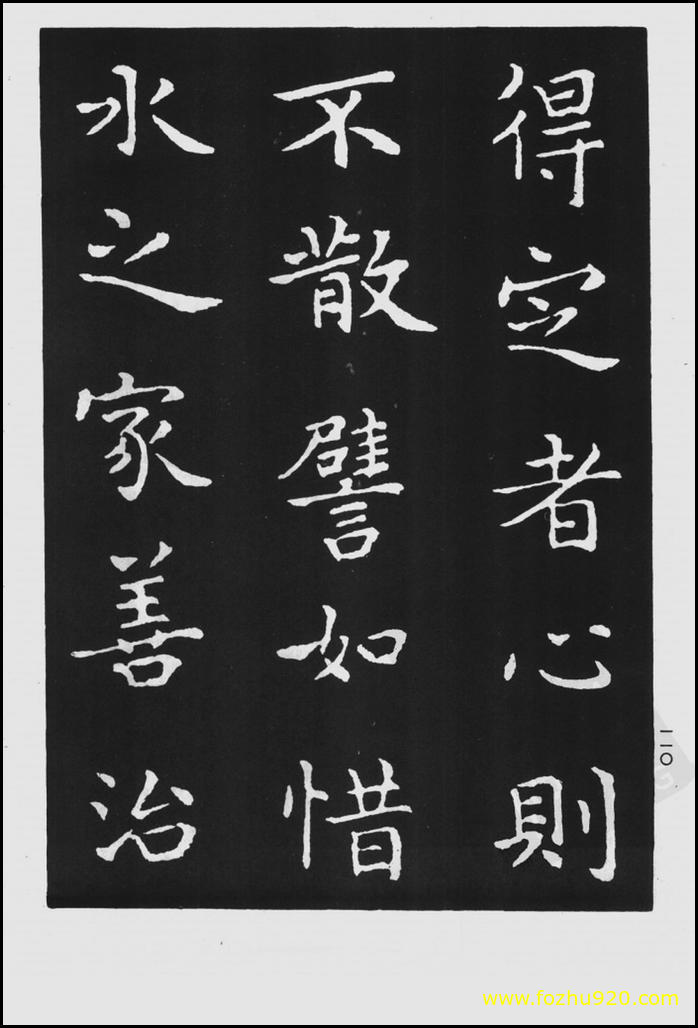 得定者心則
不散譬如惜
水之家善治
一一〇
www.fozhu920.com